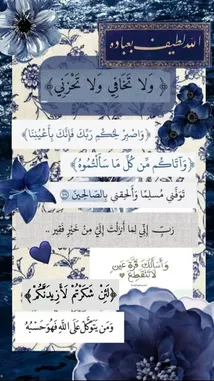 الله لطيف بعباده
﴿ وَلَا تَخَافِي وَلَا تَحْزَنِي ﴾
﴿وَاصْبِرْ لِحُكْمِ رَبِّكَ فَإِنَّكَ بِأَعْيُنِنَا﴾
﴿وَآتَاكُم مِّن كُلِّ مَا سَأَلْتُمُوهُ﴾
تَوَفَّنِي مُسْلِمًا وَأَلْحِقْنِي بِالصَّالِحِينَ
رَبِّ إِنِّي لِمَا أَنزَلْتَ إِلَيَّ مِنْ خَيْرٍ فَقِير ..
وَأَسْأَلُكَ قُرَّةَ عَيْنٍ
لَا تَنْقَطِعُ
﴿لَئِنْ شَكَرْتُمْ لَأَزِيدَنَّكُمْ﴾
وَمَن يَتَوَكَّلْ عَلَى اللَّهِ فَهُوَ حَسْبُهُ